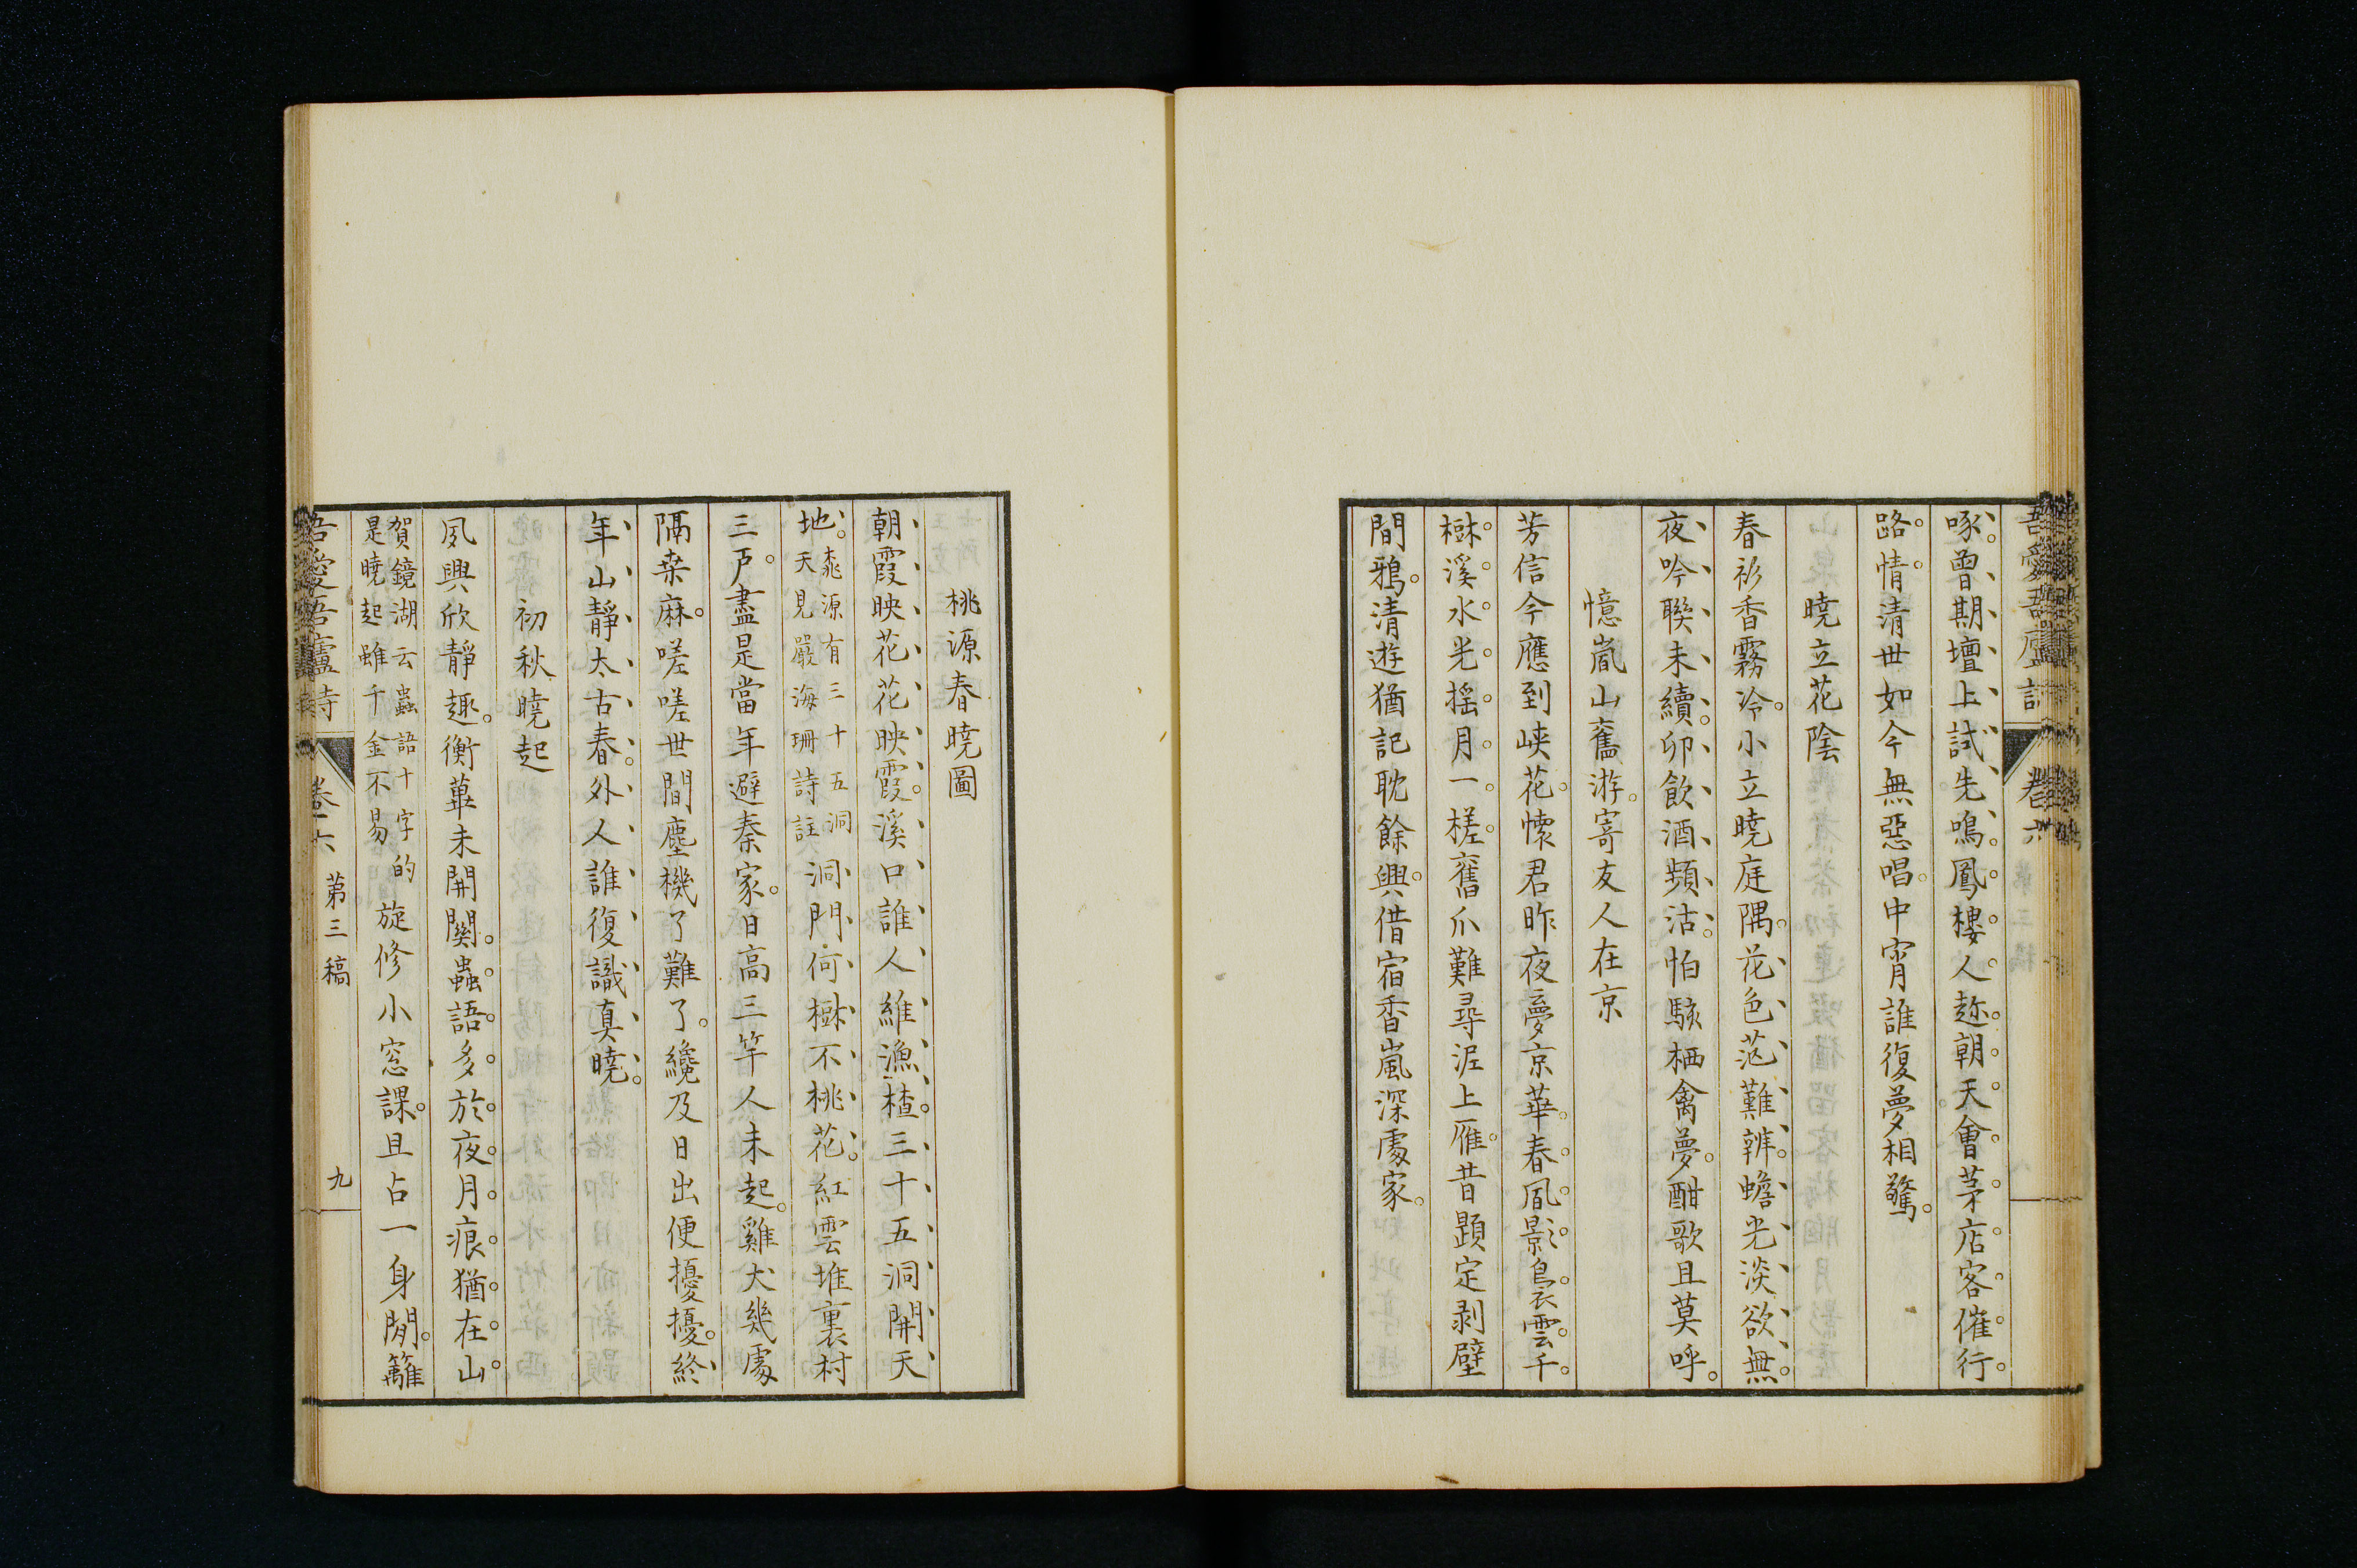 啄曾期壇上試先鳴鳳樓人趂朝天會茅店客催行
路情清世如今無惡唱中宵誰復夢相驚
曉立花陰
春衫香霧冷小立曉庭隅花色茫難辨蟾光淡欲無
夜吟聯未續卯飲酒頻沽怕駭栖禽夢酣歌且莫呼
憶嵐山舊游寄友人在京
芳信今應到峽花懷君昨夜夢京華春風影裊雲千
樹溪水光搖月一槎舊爪難尋泥上雁昔題定剥壁
間鴉清遊猶記耽餘興借宿香嵐深處家
桃源春曉圖
朝霞映花花映霞溪口誰人維漁楂三十五洞開天
地桃源有三十五洞天見嚴海珊詩註洞門何樹不桃花紅雲堆裏村
三戸盡是當年避秦家日高三竿人未起雞犬幾處
隔桒麻嗟嗟世間塵機了難了纔及日出便擾擾終
年山靜太古春外人誰復識真曉
初秋曉起
夙興欣靜趣衡蓽未開關蟲語多於夜月痕猶在山
賀鏡湖云蟲語十字的是曉起雖千金不易旋修小窓課且占一身閒籬
吾愛吾廬詩 卷六 第三稿 九